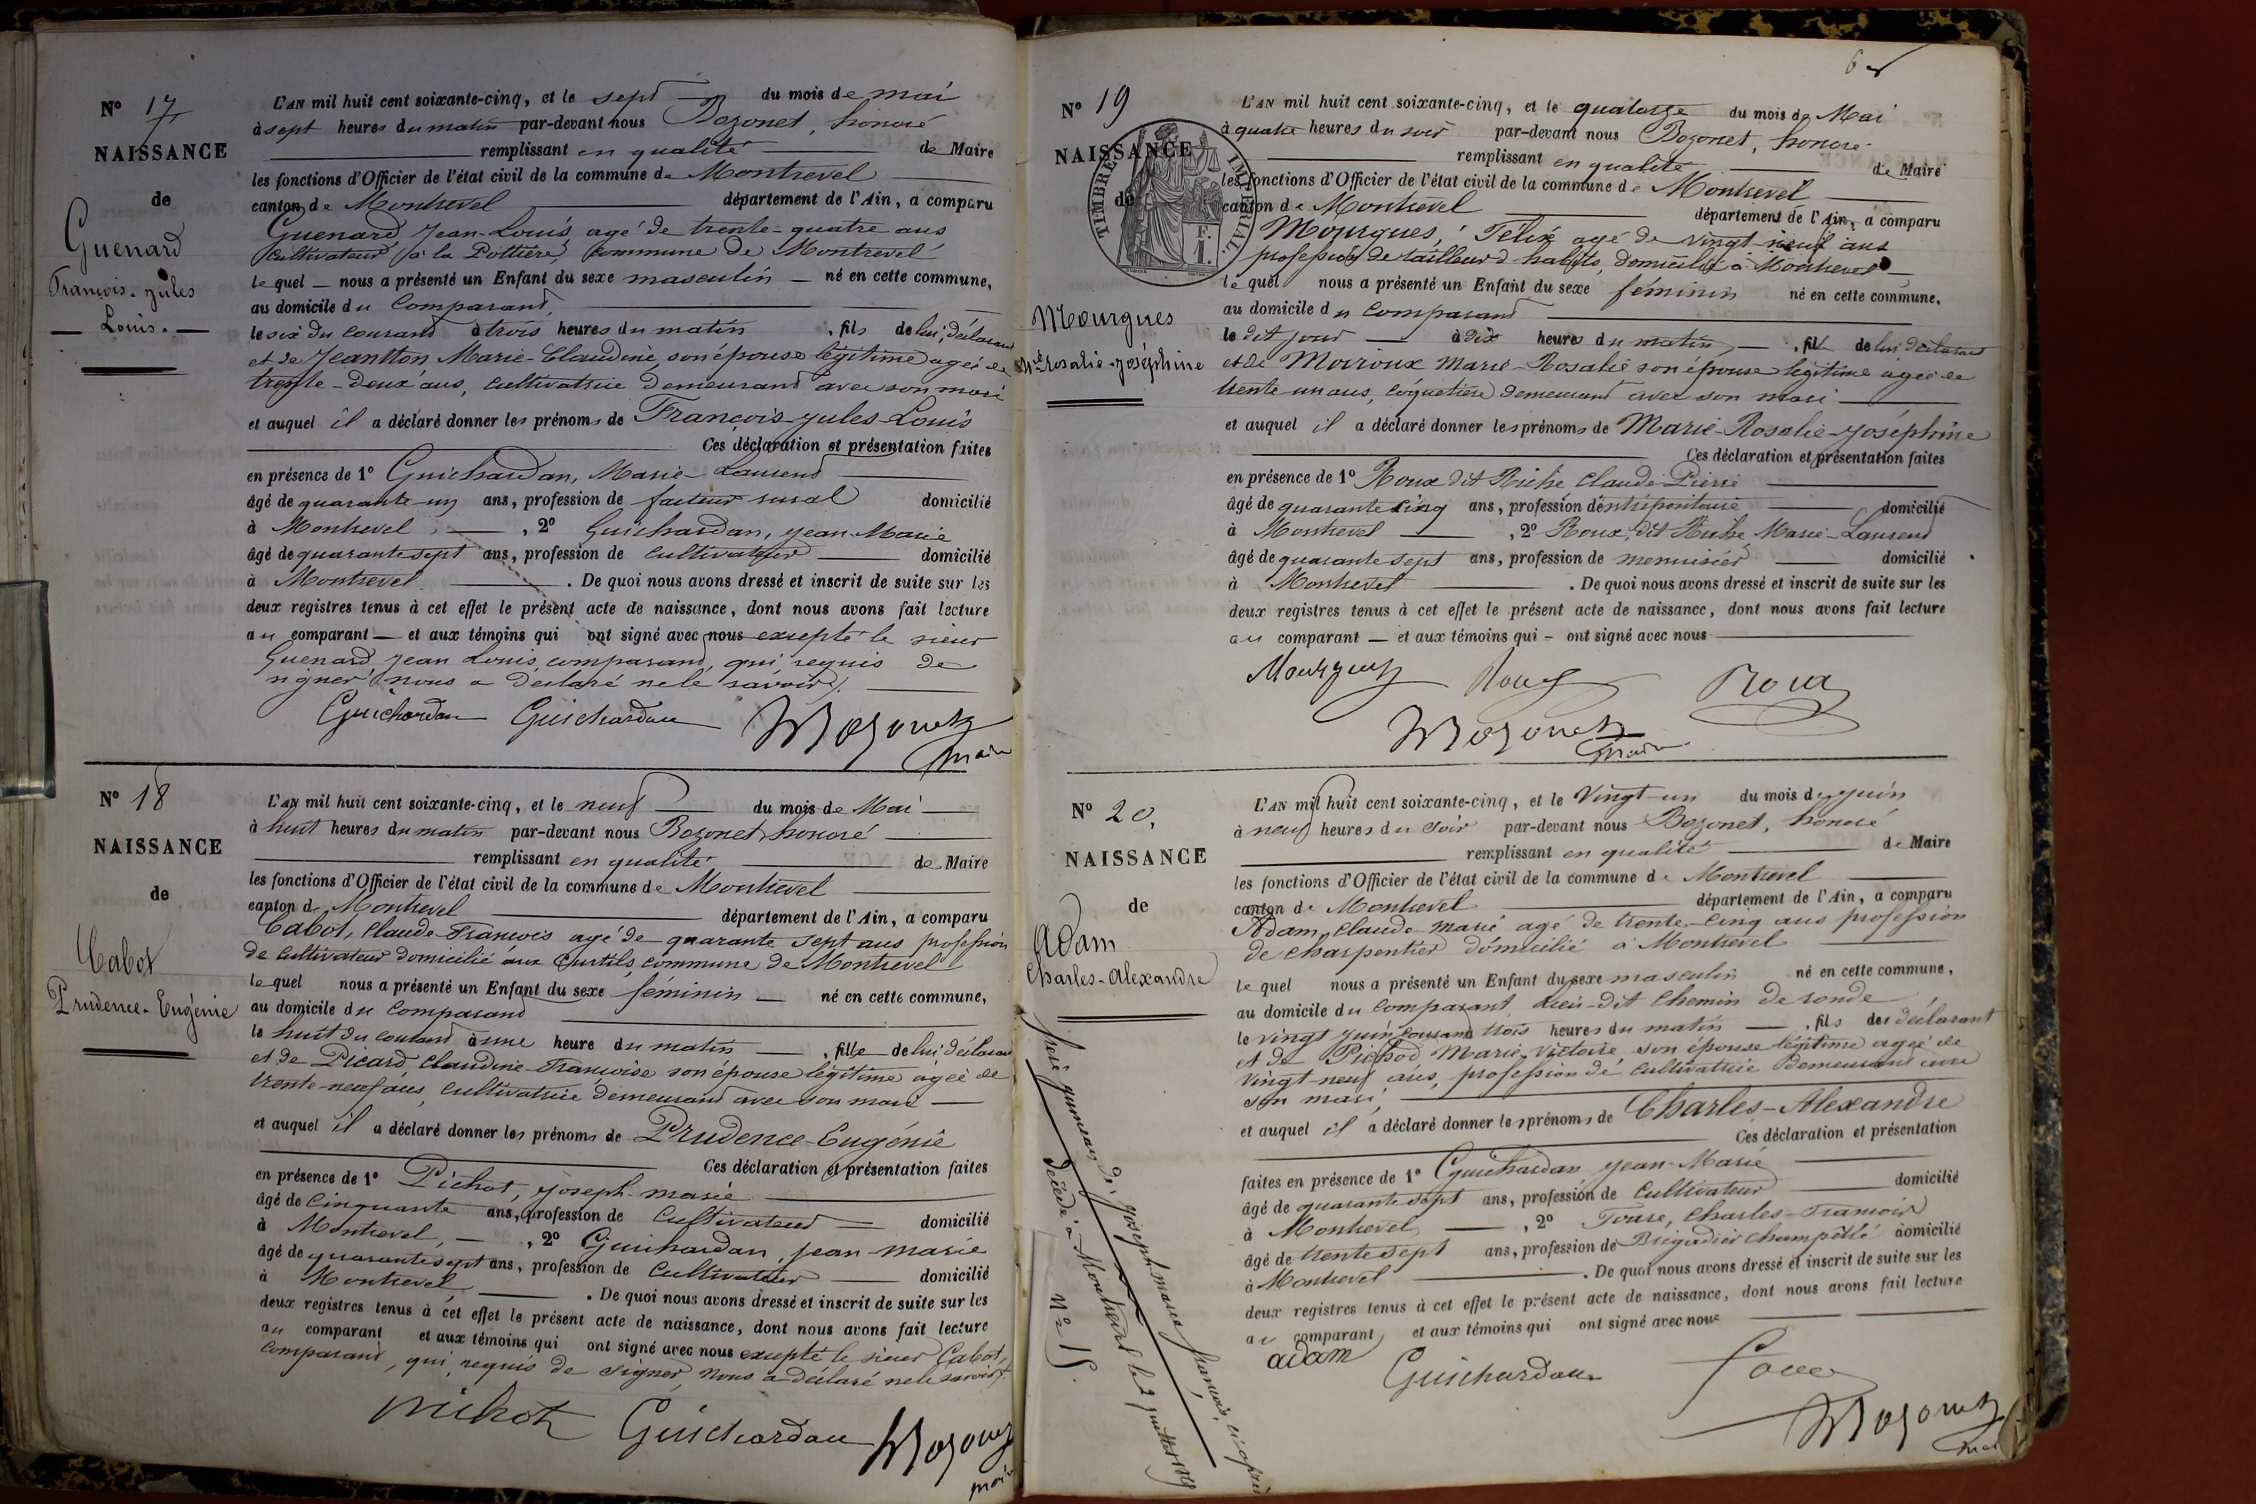 N° 17
NAISSANCE
de
Guenard
François-Jules
Louis.
L'AN mil huit cent soixante-cinq, et le sept du mois de mai
à sept heures du matin par-devant nous Bozonet, honoré
remplissant en qualité de Maire
les fonctions d'Officier de l'état civil de la commune de Montrevel
canton de Montrevel département de l'Ain, a comparu
Guenard Jean-Louis agé de trente-quatre ans
cultivateur à la Pottière, commune de Montrevel
lequel nous a présenté un Enfant du sexe masculin né en cette commune,
au domicile du Comparant,
le six du courant à trois heures du matin, fils de lui, déclarant
et de Jeantton Marie-Claudine, son épouse légitime agée de
trente-deux ans, cultivatrice demeurant avec son mari
et auquel il a déclaré donner les prénoms de François-Jules-Louis
Ces déclaration et présentation faites
en présence de 1° Guichardan, Marie-Laurent
âgé de quarante-un ans, profession de facteur rural domicilié
à Montrevel, 2° Guichardan, Jean-Marie
âgé de quarante sept ans, profession de Cultivateur domicilié
à Montrevel. De quoi nous avons dressé et inscrit de suite sur les
deux registres tenus à cet effet le présent acte de naissance, dont nous avons fait lecture
au comparant et aux témoins qui ont signé avec nous excepté le sieur
Guenard Jean Louis, comparant, qui requis de
signer nous a déclaré ne le savoir.
Guichardan Guichardan Bozonet
maire
N° 18
NAISSANCE
de
Cabot
Prudence-Eugénie
L'AN mil huit cent soixante-cinq, et le neuf du mois de Mai
à huit heures du matin par-devant nous Bozonet, honoré
remplissant en qualité de Maire
les fonctions d'Officier de l'état civil de la commune de Montrevel
canton de Montrevel département de l'Ain, a comparu
Cabot, Claude-François agé de quarante sept ans profession
de cultivateur domicilié aux Curtils commune de Montrevel
lequel nous a présenté un Enfant du sexe féminin né en cette commune,
au domicile du Comparant
le huit du courant à une heure du matin, fille de lui déclarant
et de Picard, Claudine-Françoise son épouse légitime agée de
trente-neuf ans, cultivatrice demeurant avec son mari
et auquel il a déclaré donner les prénoms de Prudence-Eugénie
Ces déclaration et présentation faites
en présence de 1° Pichot, Joseph-marie
âgé de cinquante ans, profession de Cultivateur domicilié
à Montrevel, 2° Guichardan, Jean-Marie
âgé de quarante sept ans, profession de Cultivateur domicilié
à Montrevel. De quoi nous avons dressé et inscrit de suite sur les
deux registres tenus à cet effet le présent acte de naissance, dont nous avons fait lecture
au comparant et aux témoins qui ont signé avec nous excepté le sieur Cabot,
comparant, qui requis de signer, nous a déclaré ne le savoir.
Pichot Guichardan Bozonet
maire
N° 19
NAISSANCE
de
TIMBRE IMPÉRIAL
1 F.
Mourgues
Mie Rosalie-Joséphine
L'AN mil huit cent soixante-cinq, et le quatorze du mois de Mai
à quatre heures du soir par-devant nous Bozonet, honoré
remplissant en qualité de Maire
les fonctions d'Officier de l'état civil de la commune de Montrevel
canton de Montrevel département de l'Ain, a comparu
Mourgues, Félix agé de vingt-neuf ans
profession de tailleur d'habits, domicilié à Montrevel
lequel nous a présenté un Enfant du sexe féminin né en cette commune,
au domicile du comparant
le dit jour à dix heures du matin, fille de lui déclarant
et de Moiroux Marie-Rosalie son épouse légitime agée de
trente un ans, coquetière demeurant avec son mari
et auquel il a déclaré donner les prénoms de Marie-Rosalie-Joséphine
Ces déclaration et présentation faites
en présence de 1° Roux dit Riche Claude-Pierre
âgé de quarante cinq ans, profession d'entrepositaire domicilié
à Montrevel, 2° Roux, dit Riche Marie-Laurent
âgé de quarante sept ans, profession de menuisier domicilié
à Montrevel. De quoi nous avons dressé et inscrit de suite sur les
deux registres tenus à cet effet le présent acte de naissance, dont nous avons fait lecture
au comparant et aux témoins qui ont signé avec nous
Mourgues Roux Roux
Bozonet
maire
N° 20.
NAISSANCE
de
Adam
Charles-Alexandre
frère jumeau de Joseph marie françois, ci après
décédé à Montrevel le
N° 15.
L'AN mil huit cent soixante-cinq, et le Vingt-un du mois de Juin
à neuf heures du soir par-devant nous Bozonet, honoré
remplissant en qualité de Maire
les fonctions d'Officier de l'état civil de la commune de Montrevel
canton de Montrevel département de l'Ain, a comparu
Adam, Claude-Marie agé de trente-cinq ans profession
de charpentier domicilié à Montrevel
lequel nous a présenté un Enfant du sexe masculin né en cette commune,
au domicile du comparant, lieu-dit Chemin de ronde
le vingt Juin courant trois heures du matin, fils des déclarant
et de Pichod Marie-Victoire, son épouse légitime agée de
vingt-neuf ans, profession de cultivatrice demeurant avec
son mari,
et auquel il a déclaré donner les prénoms de Charles-Alexandre
Ces déclaration et présentation
faites en présence de 1° Guichardan Jean-Marie
âgé de quarante sept ans, profession de Cultivateur domicilié
à Montrevel, 2° Charles-François
âgé de trente sept ans, profession de Brigadier champêtre domicilié
à Montrevel. De quoi nous avons dressé et inscrit de suite sur les
deux registres tenus à cet effet le présent acte de naissance, dont nous avons fait lecture
au comparant et aux témoins qui ont signé avec nous
adam Guichardan
Bozonet